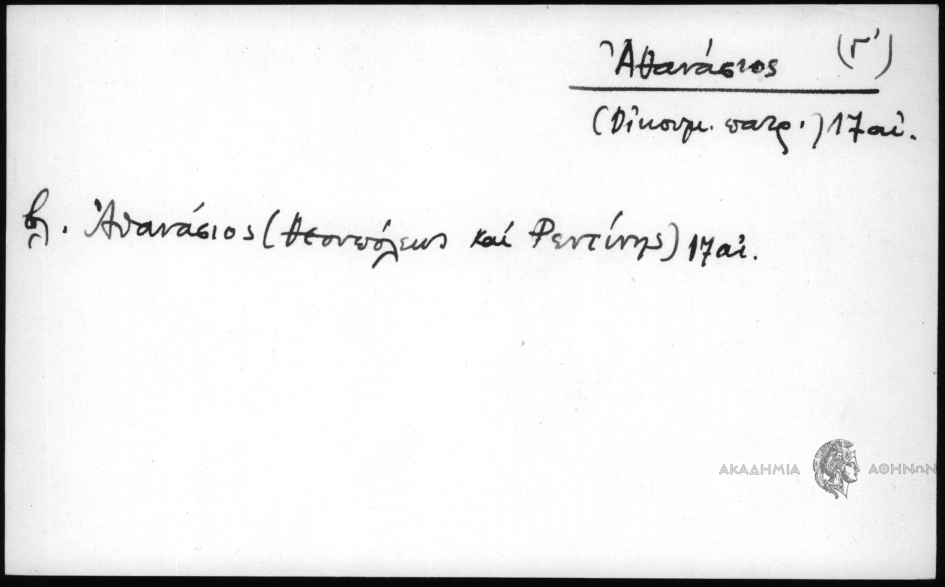 Ἀθανάσιος (Γ')
(Οἰκουμ. πατρ.) 17 αἰ.
βλ. Ἀθανάσιος (Θεουπόλεως καὶ Ρεντίνης) 17 αἰ.
ΑΚΑΔΗΜΙΑ ΑΘΗΝΩΝ